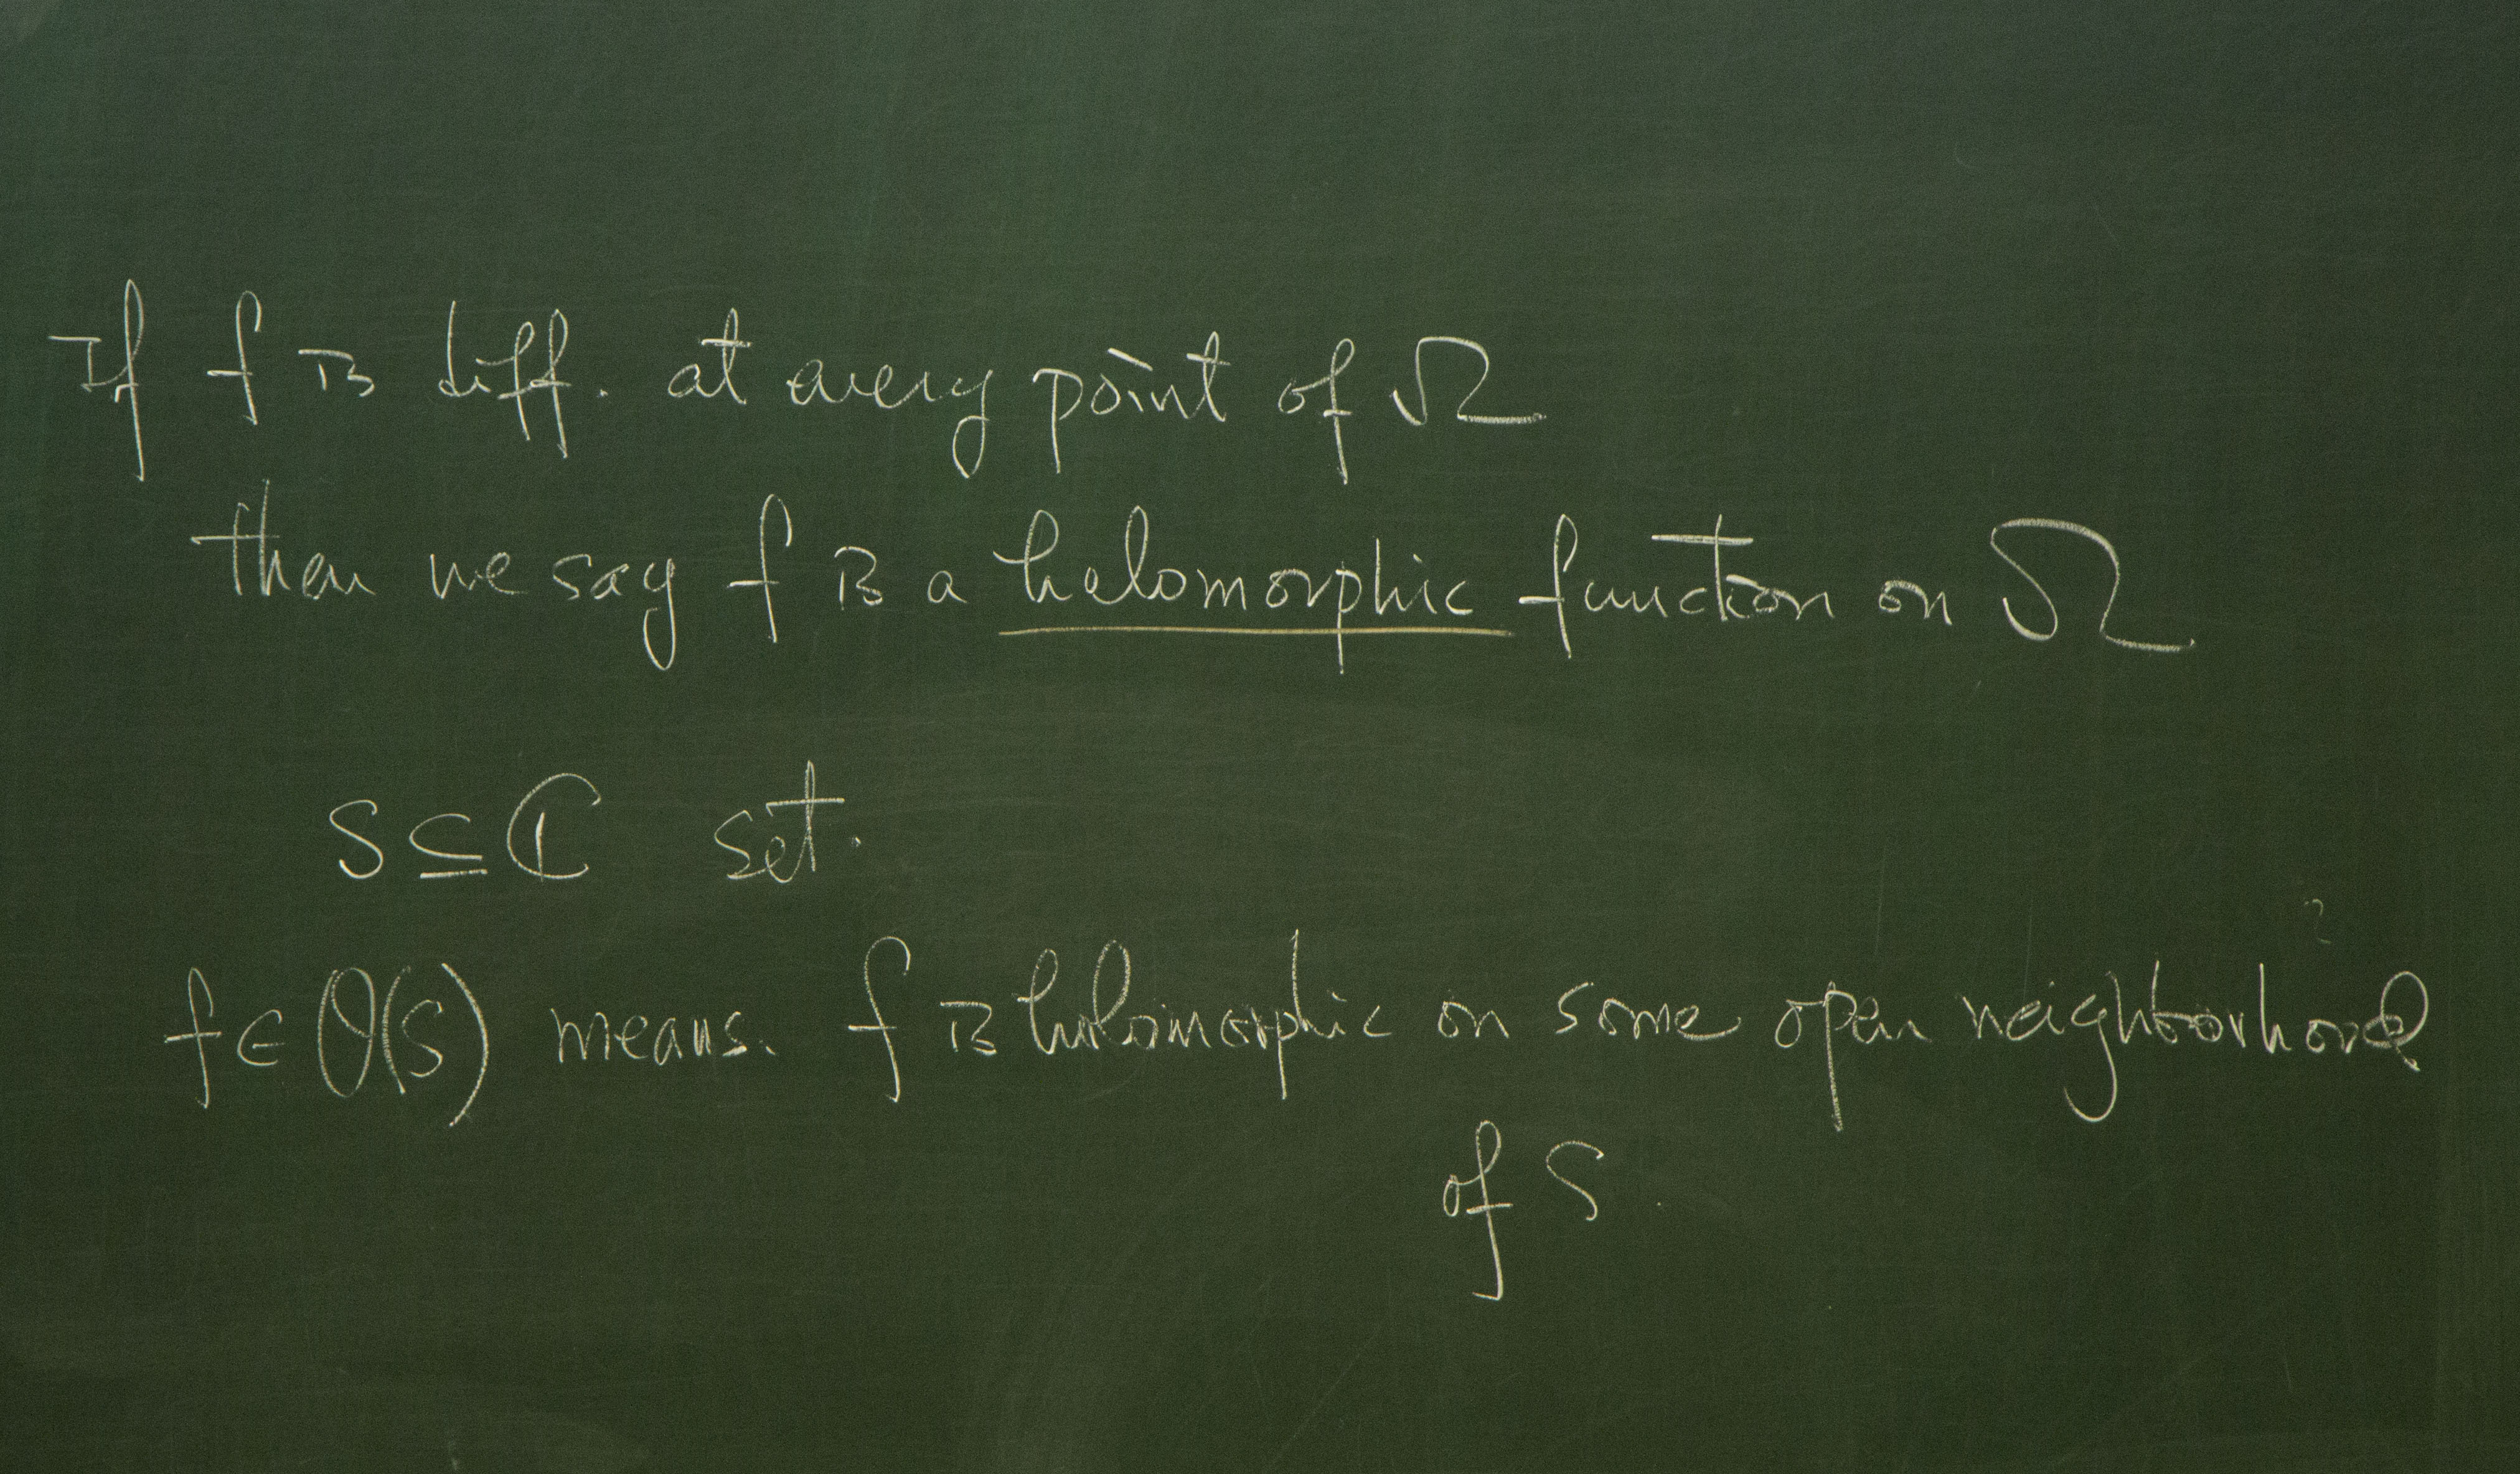 If f is diff. at every point of Ω
then we say f is a holomorphic function on Ω
S ⊆ ℂ set.
f ∈ O(S) means. f is holomorphic on some open neighborhood
of S.